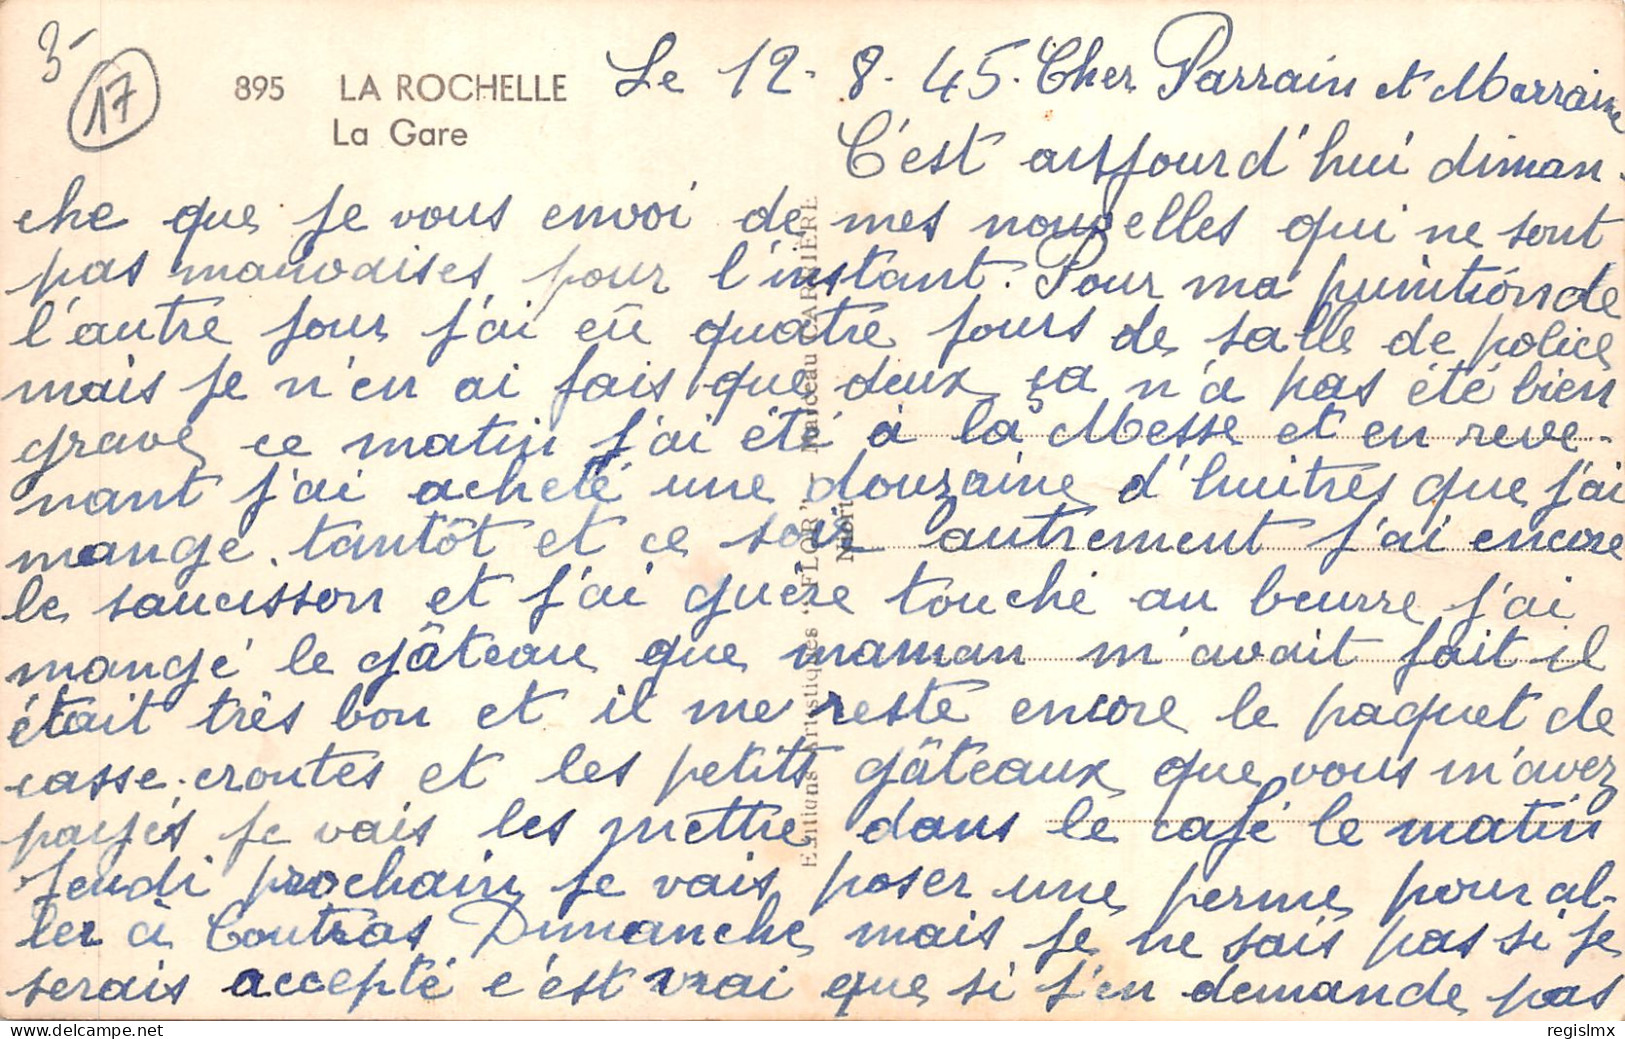 3-
17
895 LA ROCHELLE
La Gare
Le 12-8-45. Cher Parrain et Marraine
C'est aujourd'hui diman-
che que je vous envoi de mes nouvelles qui ne sont
pas mauvaises pour l'instant. Pour ma punition de
l'autre jour j'ai eû quatre jours de salle de police
mais je n'en ai fais que deux ça n'a pas été bien
grave ce matin j'ai été à la Messe et en reve-
nant j'ai acheté une douzaine d'huitres que j'ai
mangé. tantôt et ce soir autrement j'ai encore
le saucisson et j'ai guère touché au beurre j'ai
mangé le gâteau que maman m'avait fait il
était très bon et il me reste encore le paquet de
casse-croutes et les petits gâteaux que vous m'avez
payés je vais les mettre dans le café le matin
Jeudi prochain je vais poser une perme pour al-
ler à Coutras Dimanche mais je ne sais pas si je
serais accepté c'est vrai que si j'en demande pas
Editions Artistiques "FLOR" Marceau CARRIÈRE
Niort
delcampe.net
regislmx